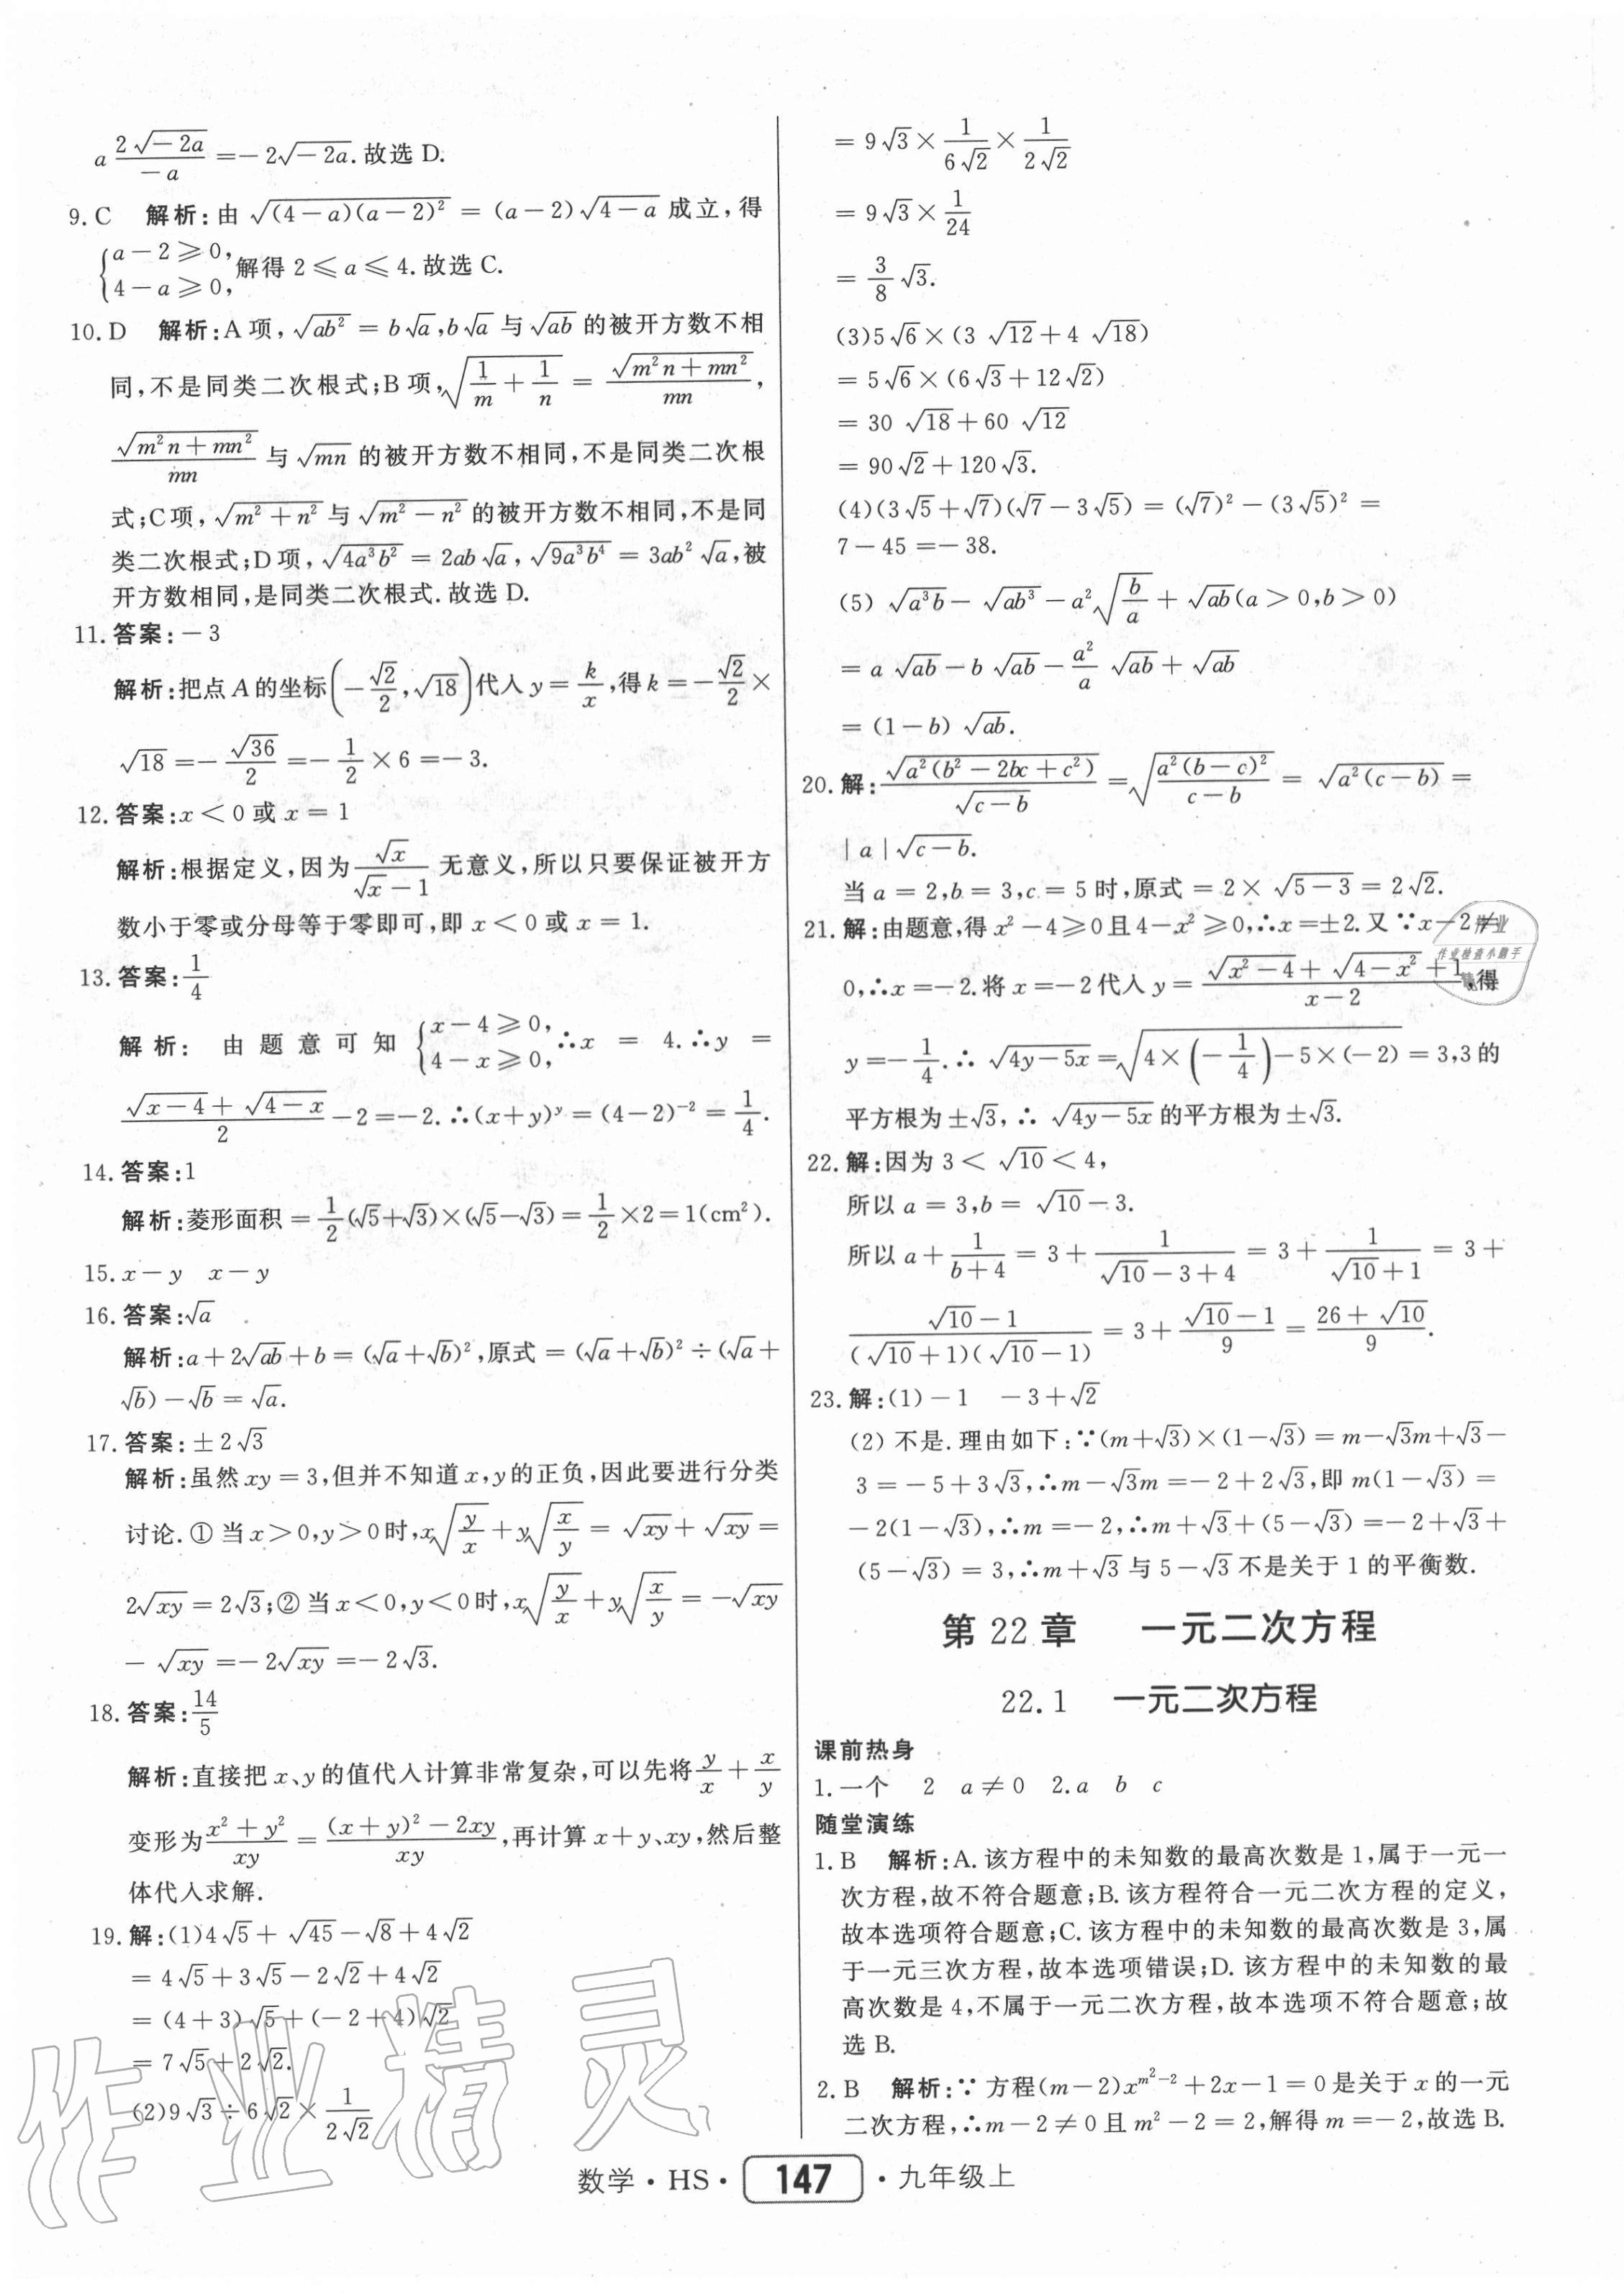 a 2√(-2a)/(-a) =-2√(-2a).故选 D.
9. C 解析:由 √((4-a)(a-2)²) = (a-2)√(4-a) 成立,得
{a-2⩾0, 4-a⩾0, 解得 2⩽a⩽4.故选 C.
10. D 解析:A 项, √(ab²) = b√a,b√a 与 √(ab) 的被开方数不相
同,不是同类二次根式;B 项, √(1/m + 1/n) = √(m²n+mn²)/mn,
√(m²n+mn²)/mn 与 √(mn) 的被开方数不相同,不是同类二次根
式;C 项, √(m²+n²) 与 √(m²-n²) 的被开方数不相同,不是同
类二次根式;D 项, √(4a³b²) = 2ab√a, √(9a³b⁴) = 3ab²√a,被
开方数相同,是同类二次根式.故选 D.
11. 答案:-3
解析:把点 A 的坐标(-√2/2,√18)代入 y=k/x,得 k=-√2/2×
√18=-√36/2=-1/2×6=-3.
12. 答案:x<0 或 x=1
解析:根据定义,因为 √x/(√x-1) 无意义,所以只要保证被开方
数小于零或分母等于零即可,即 x<0 或 x=1.
13. 答案:1/4
解析: 由题意可知 {x-4⩾0, 4-x⩾0, ∴x = 4.∴y =
(√(x-4)+√(4-x))/2-2=-2.∴(x+y)^y=(4-2)⁻²=1/4.
14. 答案:1
解析:菱形面积=1/2(√5+√3)×(√5-√3)=1/2×2=1(cm²).
15. x-y x-y
16. 答案:√a
解析:a+2√(ab)+b=(√a+√b)²,原式=(√a+√b)²÷(√a+
√b)-√b=√a.
17. 答案:±2√3
解析:虽然 xy=3,但并不知道 x,y 的正负,因此要进行分类
讨论.①当 x>0,y>0 时,x√(y/x)+y√(x/y)=√(xy)+√(xy)=
2√(xy)=2√3;②当 x<0,y<0 时,x√(y/x)+y√(x/y)=-√(xy)
-√(xy)=-2√(xy)=-2√3.
18. 答案:14/5
解析:直接把 x、y 的值代入计算非常复杂,可以先将 y/x+x/y
变形为 (x²+y²)/xy=((x+y)²-2xy)/xy,再计算 x+y、xy,然后整
体代入求解.
19. 解:(1)4√5+√45-√8+4√2
=4√5+3√5-2√2+4√2
=(4+3)√5+(-2+4)√2
=7√5+2√2.
(2)9√3÷6√2×1/(2√2)
=9√3×1/(6√2)×1/(2√2)
=9√3×1/24
=3/8√3.
(3)5√6×(3√12+4√18)
=5√6×(6√3+12√2)
=30√18+60√12
=90√2+120√3.
(4)(3√5+√7)(√7-3√5)=(√7)²-(3√5)²=
7-45=-38.
(5)√(a³b)-√(ab³)-a²√(b/a)+√(ab)(a>0,b>0)
=a√(ab)-b√(ab)-a²/a√(ab)+√(ab)
=(1-b)√(ab).
20. 解:√(a²(b²-2bc+c²))/√(c-b)=√(a²(b-c)²/(c-b))=√(a²(c-b))=
|a|√(c-b).
当 a=2,b=3,c=5 时,原式=2×√(5-3)=2√2.
21. 解:由题意,得 x²-4⩾0 且 4-x²⩾0,∴x=±2.又∵x-2≠
0,∴x=-2.将 x=-2 代入 y=(√(x²-4)+√(4-x²)+1)/(x-2),得
y=-1/4.∴√(4y-5x)=√(4×(-1/4)-5×(-2))=3,3 的
平方根为±√3,∴√(4y-5x) 的平方根为±√3.
22. 解:因为 3<√10<4,
所以 a=3,b=√10-3.
所以 a+1/(b+4)=3+1/(√10-3+4)=3+1/(√10+1)=3+
(√10-1)/((√10+1)(√10-1))=3+(√10-1)/9=(26+√10)/9.
23. 解:(1)-1 -3+√2
(2)不是.理由如下:∵(m+√3)×(1-√3)=m-√3m+√3-
3=-5+3√3,∴m-√3m=-2+2√3,即 m(1-√3)=
-2(1-√3),∴m=-2,∴m+√3+(5-√3)=-2+√3+
(5-√3)=3,∴m+√3 与 5-√3 不是关于 1 的平衡数.
第 22 章 一元二次方程
22.1 一元二次方程
课前热身
1. 一个 2 a≠0 2. a b c
随堂演练
1. B 解析:A. 该方程中的未知数的最高次数是 1,属于一元一
次方程,故不符合题意;B. 该方程符合一元二次方程的定义,
故本选项符合题意;C. 该方程中的未知数的最高次数是 3,属
于一元三次方程,故本选项错误;D. 该方程中的未知数的最
高次数是 4,不属于一元二次方程,故本选项不符合题意;故
选 B.
2. B 解析:∵方程(m-2)x^(m²-2)+2x-1=0 是关于 x 的一元
二次方程,∴m-2≠0 且 m²-2=2,解得 m=-2,故选 B.
数学·HS· 147 ·九年级上
作业精灵
作业
作业检查小助手